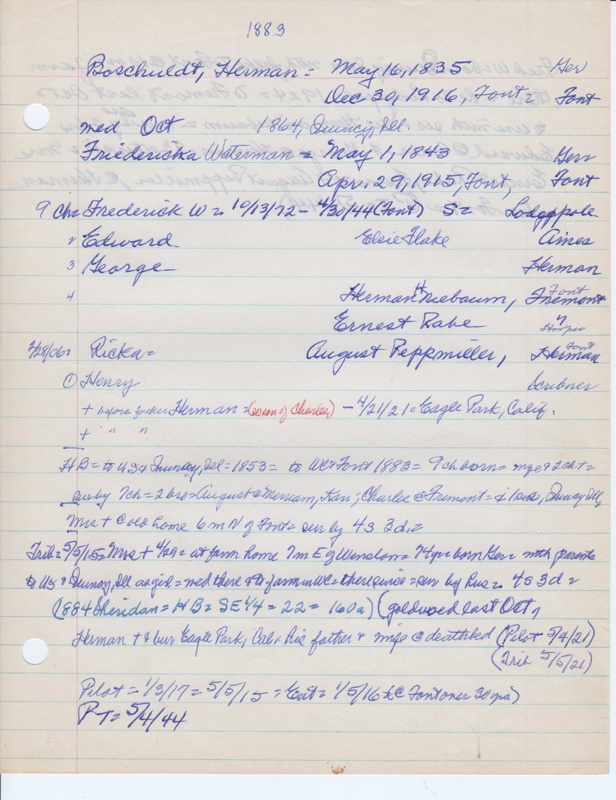 1883
Boschuldt, Herman = May 16, 1835 Ger
Dec 30, 1916, Font = Font
med Oct 1864, Quincy, Ill.
Friedericka Waterman = May 1, 1843 Ger
Apr. 29, 1915, Font, Font
9 Ch = Frederick W = 10/13/72 - 4/30/44 (Font) S = Lodgepole
2 Edward Elsie Flake Ames
3 George Herman
4 Herman H Niebaum, Font Fremont
Ernest Rabe 4 Hooper
2/28/06 Ricka = August Peppmiller, Font Herman
① Henry Scribner
+ before father Herman = (so son of Charley) - 4/21/21 = Eagle Park, Calif.
+ " "
HB = to US & Quincy, Ill = 1853 = to WC & Font 1883 = 9 ch born =
sur by 7 ch = 2 bro = August @ Merriam, Kan; Charles @ Fremont = Quincy Ill,
Mrs + @ old home 6 m N of Font = sur by 4 s 3 d. =
Trib = 5/5/15 = Mrs + 4/29 = at farm home 7 m E of Winslow = 74 yr = born Ger = with parents
to US & Quincy, Ill as girl = med there & to farm in WC = there since = sur by Hus = 4 s 3 d =
(1884 Sheridan = HB = SE 1/4 = 22 = 160 a) (gold wed last Oct,
Herman + & bur Eagle Park, Cal. his father & @ deathbed (Pilot 5/4/21)
(Trib 5/5/21)
Pilot = 1/3/17 = 5/5/15 = Ent = 1/5/16 Font over 30 yrs)
PT = 5/4/44